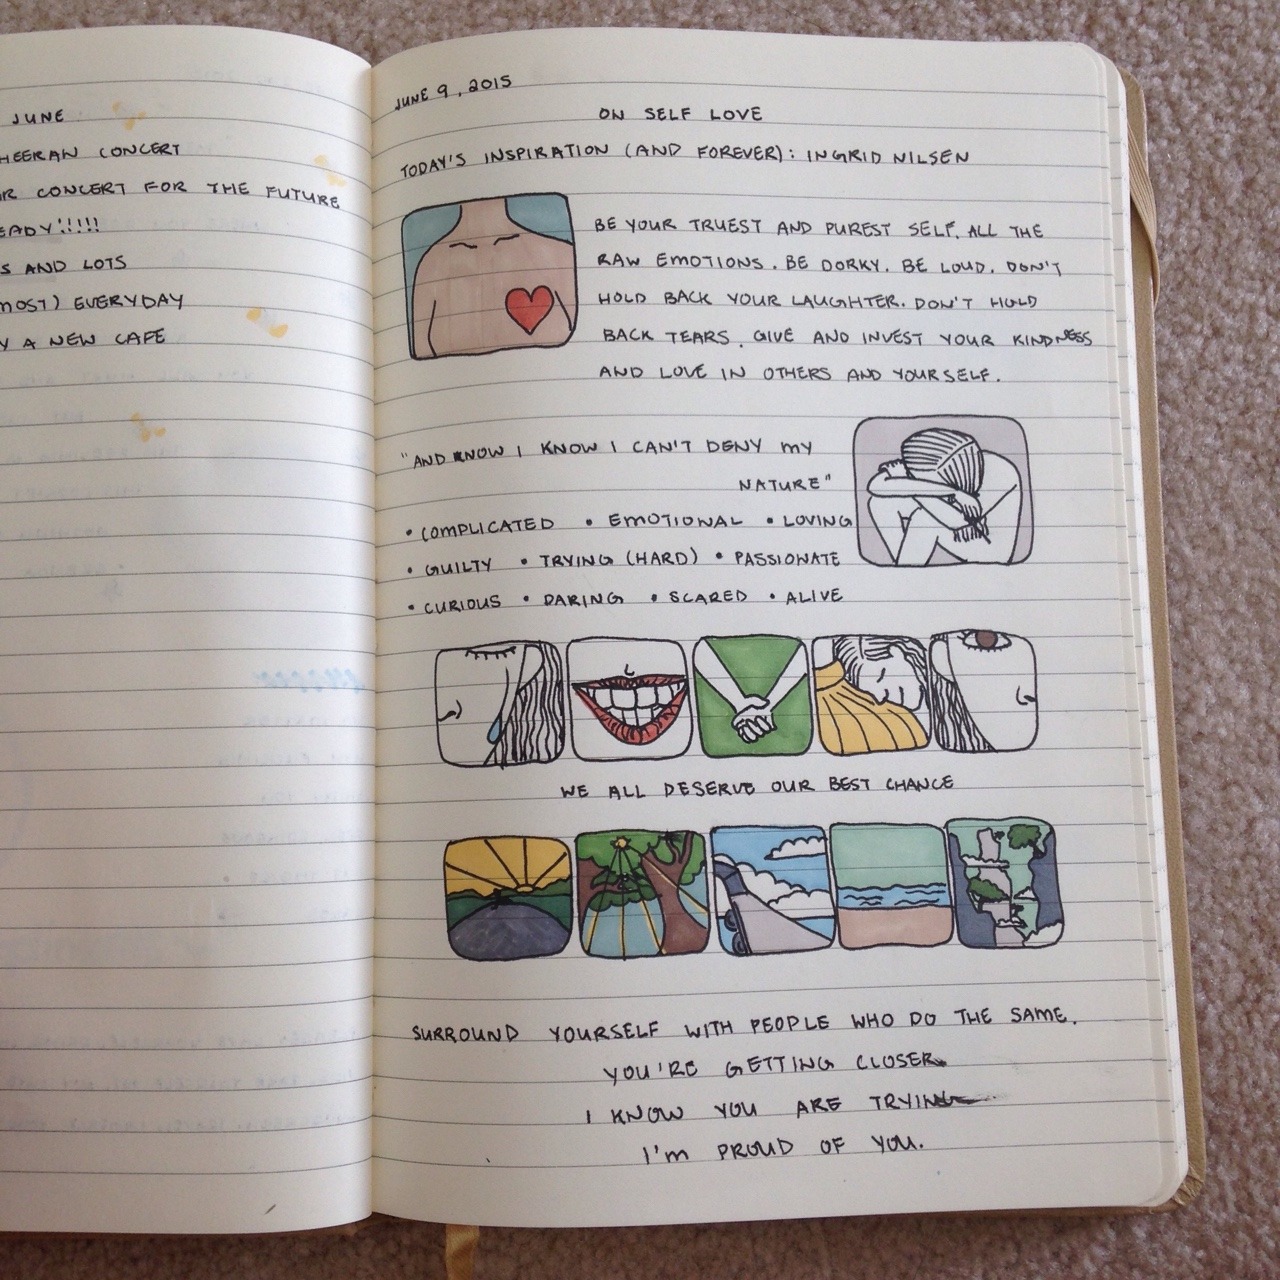 JUNE
HEERAN CONCERT
R CONCERT FOR THE FUTURE
EADY!!!!!
S AND LOTS
MOST) EVERYDAY
Y A NEW CAFE
JUNE 9, 2015
ON SELF LOVE
TODAY'S INSPIRATION (AND FOREVER): INGRID NILSEN
BE YOUR TRUEST AND PUREST SELF. ALL THE
RAW EMOTIONS. BE DORKY. BE LOUD. DON'T
HOLD BACK YOUR LAUGHTER. DON'T HOLD
BACK TEARS. GIVE AND INVEST YOUR KINDNESS
AND LOVE IN OTHERS AND YOURSELF.
"AND KNOW I KNOW I CAN'T DENY MY
NATURE"
• COMPLICATED • EMOTIONAL • LOVING
• GUILTY • TRYING (HARD) • PASSIONATE
• CURIOUS • DARING • SCARED • ALIVE
WE ALL DESERVE OUR BEST CHANCE
SURROUND YOURSELF WITH PEOPLE WHO DO THE SAME.
YOU'RE GETTING CLOSER
I KNOW YOU ARE TRYING
I'M PROUD OF YOU.